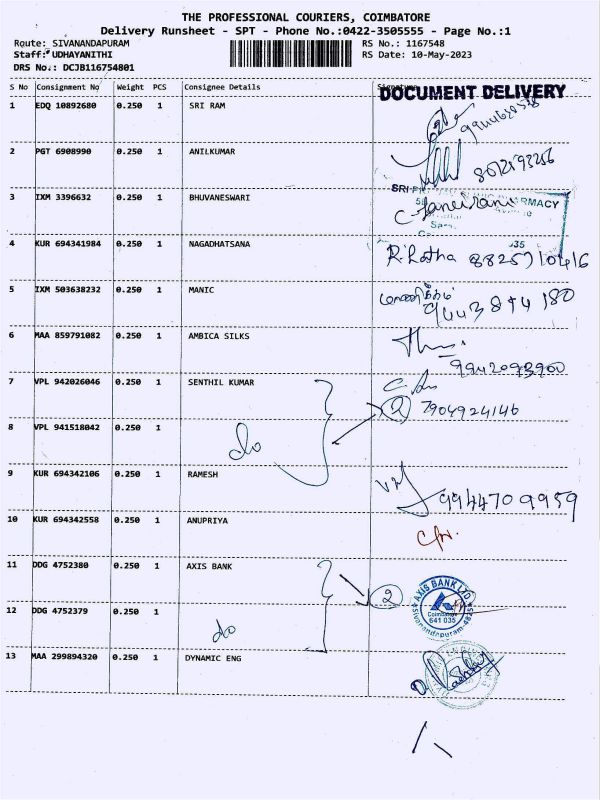 THE PROFESSIONAL COURIERS, COIMBATORE
Delivery Runsheet - SPT - Phone No.:0422-3505555 - Page No.:1
Route: SIVANANDAPURAM RS No.: 1167548
Staff: UDHAYANITHI RS Date: 10-May-2023
DRS No.: DCJB116754801
S No Consignment No Weight PCS Consignee Details Signature
DOCUMENT DELIVERY
1 EDQ 10892680 0.250 1 SRI RAM
2 PGT 6908990 0.250 1 ANILKUMAR
3 IXM 3396632 0.250 1 BHUVANESWARI
RMACY
4 KUR 694341984 0.250 1 NAGADHATSANA R. Latha
5 IXM 503638232 0.250 1 MANIC மாணிக்கம்
9443894180
6 MAA 859791082 0.250 1 AMBICA SILKS
9942093900
7 VPL 942026046 0.250 1 SENTHIL KUMAR
2 7904924146
8 VPL 941518042 0.250 1 do
9 KUR 694342106 0.250 1 RAMESH
9944709959
10 KUR 694342558 0.250 1 ANUPRIYA
11 DDG 4752380 0.250 1 AXIS BANK 2
AXIS BANK LTD.
Coimbatore
641 035
12 DDG 4752379 0.250 1 do
13 MAA 299894320 0.250 1 DYNAMIC ENG